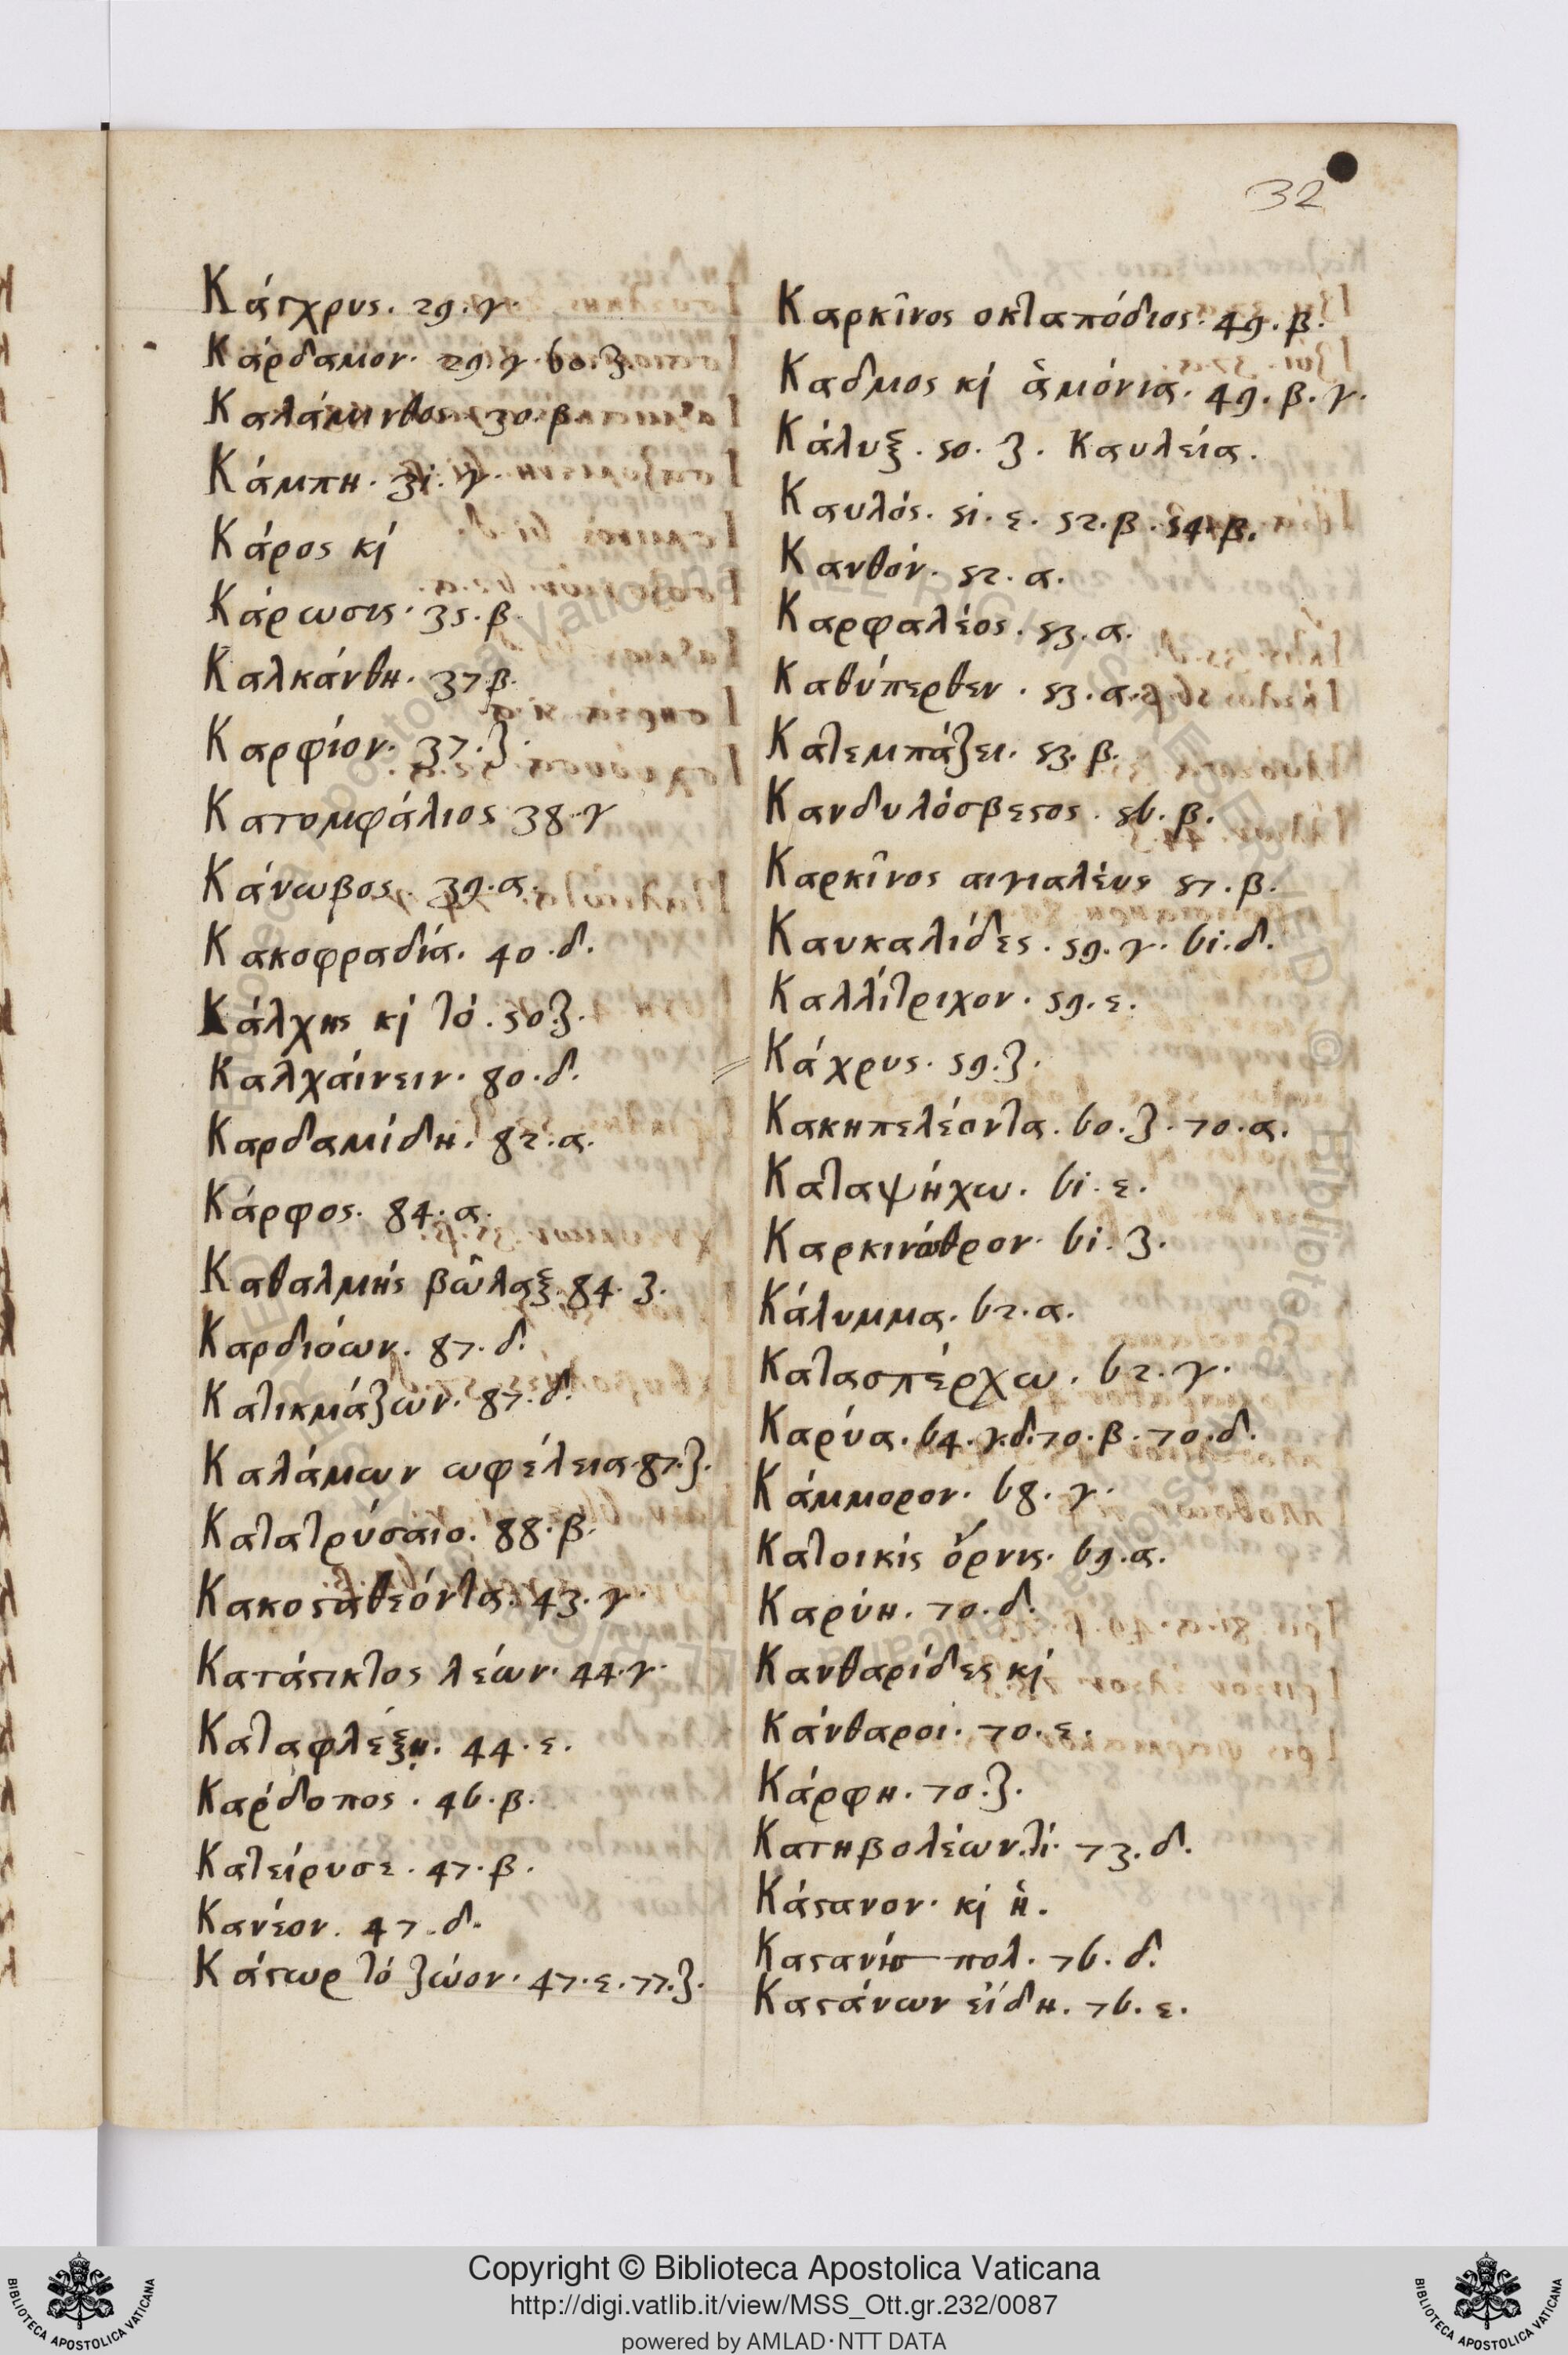 32
Κάγχρυς. 29. γ.
Κάρδαμον. 29. γ. 60. ζ.
Καλάμινθος 30. β
Κάμπη. 31. γ.
Κάρος κỳ
Κάρωσις. 35. β.
Καλκάνθη. 37 β.
Καρφίον. 37. ζ.
Κατομφάλιος 38. γ
Κάνωβος. 39. α.
Κακοφραδία. 40. δ.
Κάλχης κỳ τό. 50. ζ.
Καλχάινειν. 80. δ.
Καρδαμίδη. 82. α.
Κάρφος. 84. α.
Καθαλμής βῶλαξ. 84. ζ.
Καρδιόων. 87. δ.
Κατικμάζων. 87. δ.
Καλάμων ωφέλεια. 87. ζ.
Κατατρύσαιο. 88. β.
Κακοσταθεόντα. 43. γ.
Κατάστικτος λέων. 44. γ.
Καταφλέξῃ. 44. ε.
Καρδοπος. 46. β.
Κατείρυσε. 47. β.
Κανέον. 47. δ.
Κάστωρ τό ζώον. 47. ε. 77. ζ.
Καρκῖνος οκταπόδιος. 49. β.
Καδμος κỳ ἁμόνια. 49. β. γ.
Κάλυξ. 50. ζ. Καυλεία.
Καυλός. 51. ε. 52. β. 54. β.
Κανθόν. 52. α.
Καρφαλέος. 53. α.
Καθύπερθεν. 53. α.
Κατεμπάζει. 53. β.
Κανδυλόσβεστος. 56. β.
Καρκῖνος αιγιαλέυς 57. β.
Καυκαλίδες. 59. γ. 61. δ.
Καλλίτριχον. 59. ε.
Κάχρυς. 59. ζ.
Κακηπελέοντα. 60. ζ. 70. α.
Καταψήχω. 61. ε.
Καρκινόθρον. 61. ζ.
Κάλυμμα. 62. α.
Κατασπέρχω. 62. γ.
Καρύα. 64. γ. δ. 70. β. 70. δ.
Κάμμορον. 68. γ.
Κατοικίς ὄρνις. 69. α.
Καρύη. 70. δ.
Κανθαρίδες κỳ
Κάνθαροι. 70. ε.
Κάρφη. 70. ζ.
Κατηβολέων. τί. 73. δ.
Κάστανον. κỳ ἡ.
Καστανίσ πολ. 76. δ.
Καστάνων εἴδη. 76. ε.
Copyright © Biblioteca Apostolica Vaticana
http://digi.vatlib.it/view/MSS_Ott.gr.232/0087
powered by AMLAD·NTT DATA
BIBLIOTECA APOSTOLICA VATICANA
BIBLIOTECA APOSTOLICA VATICANA